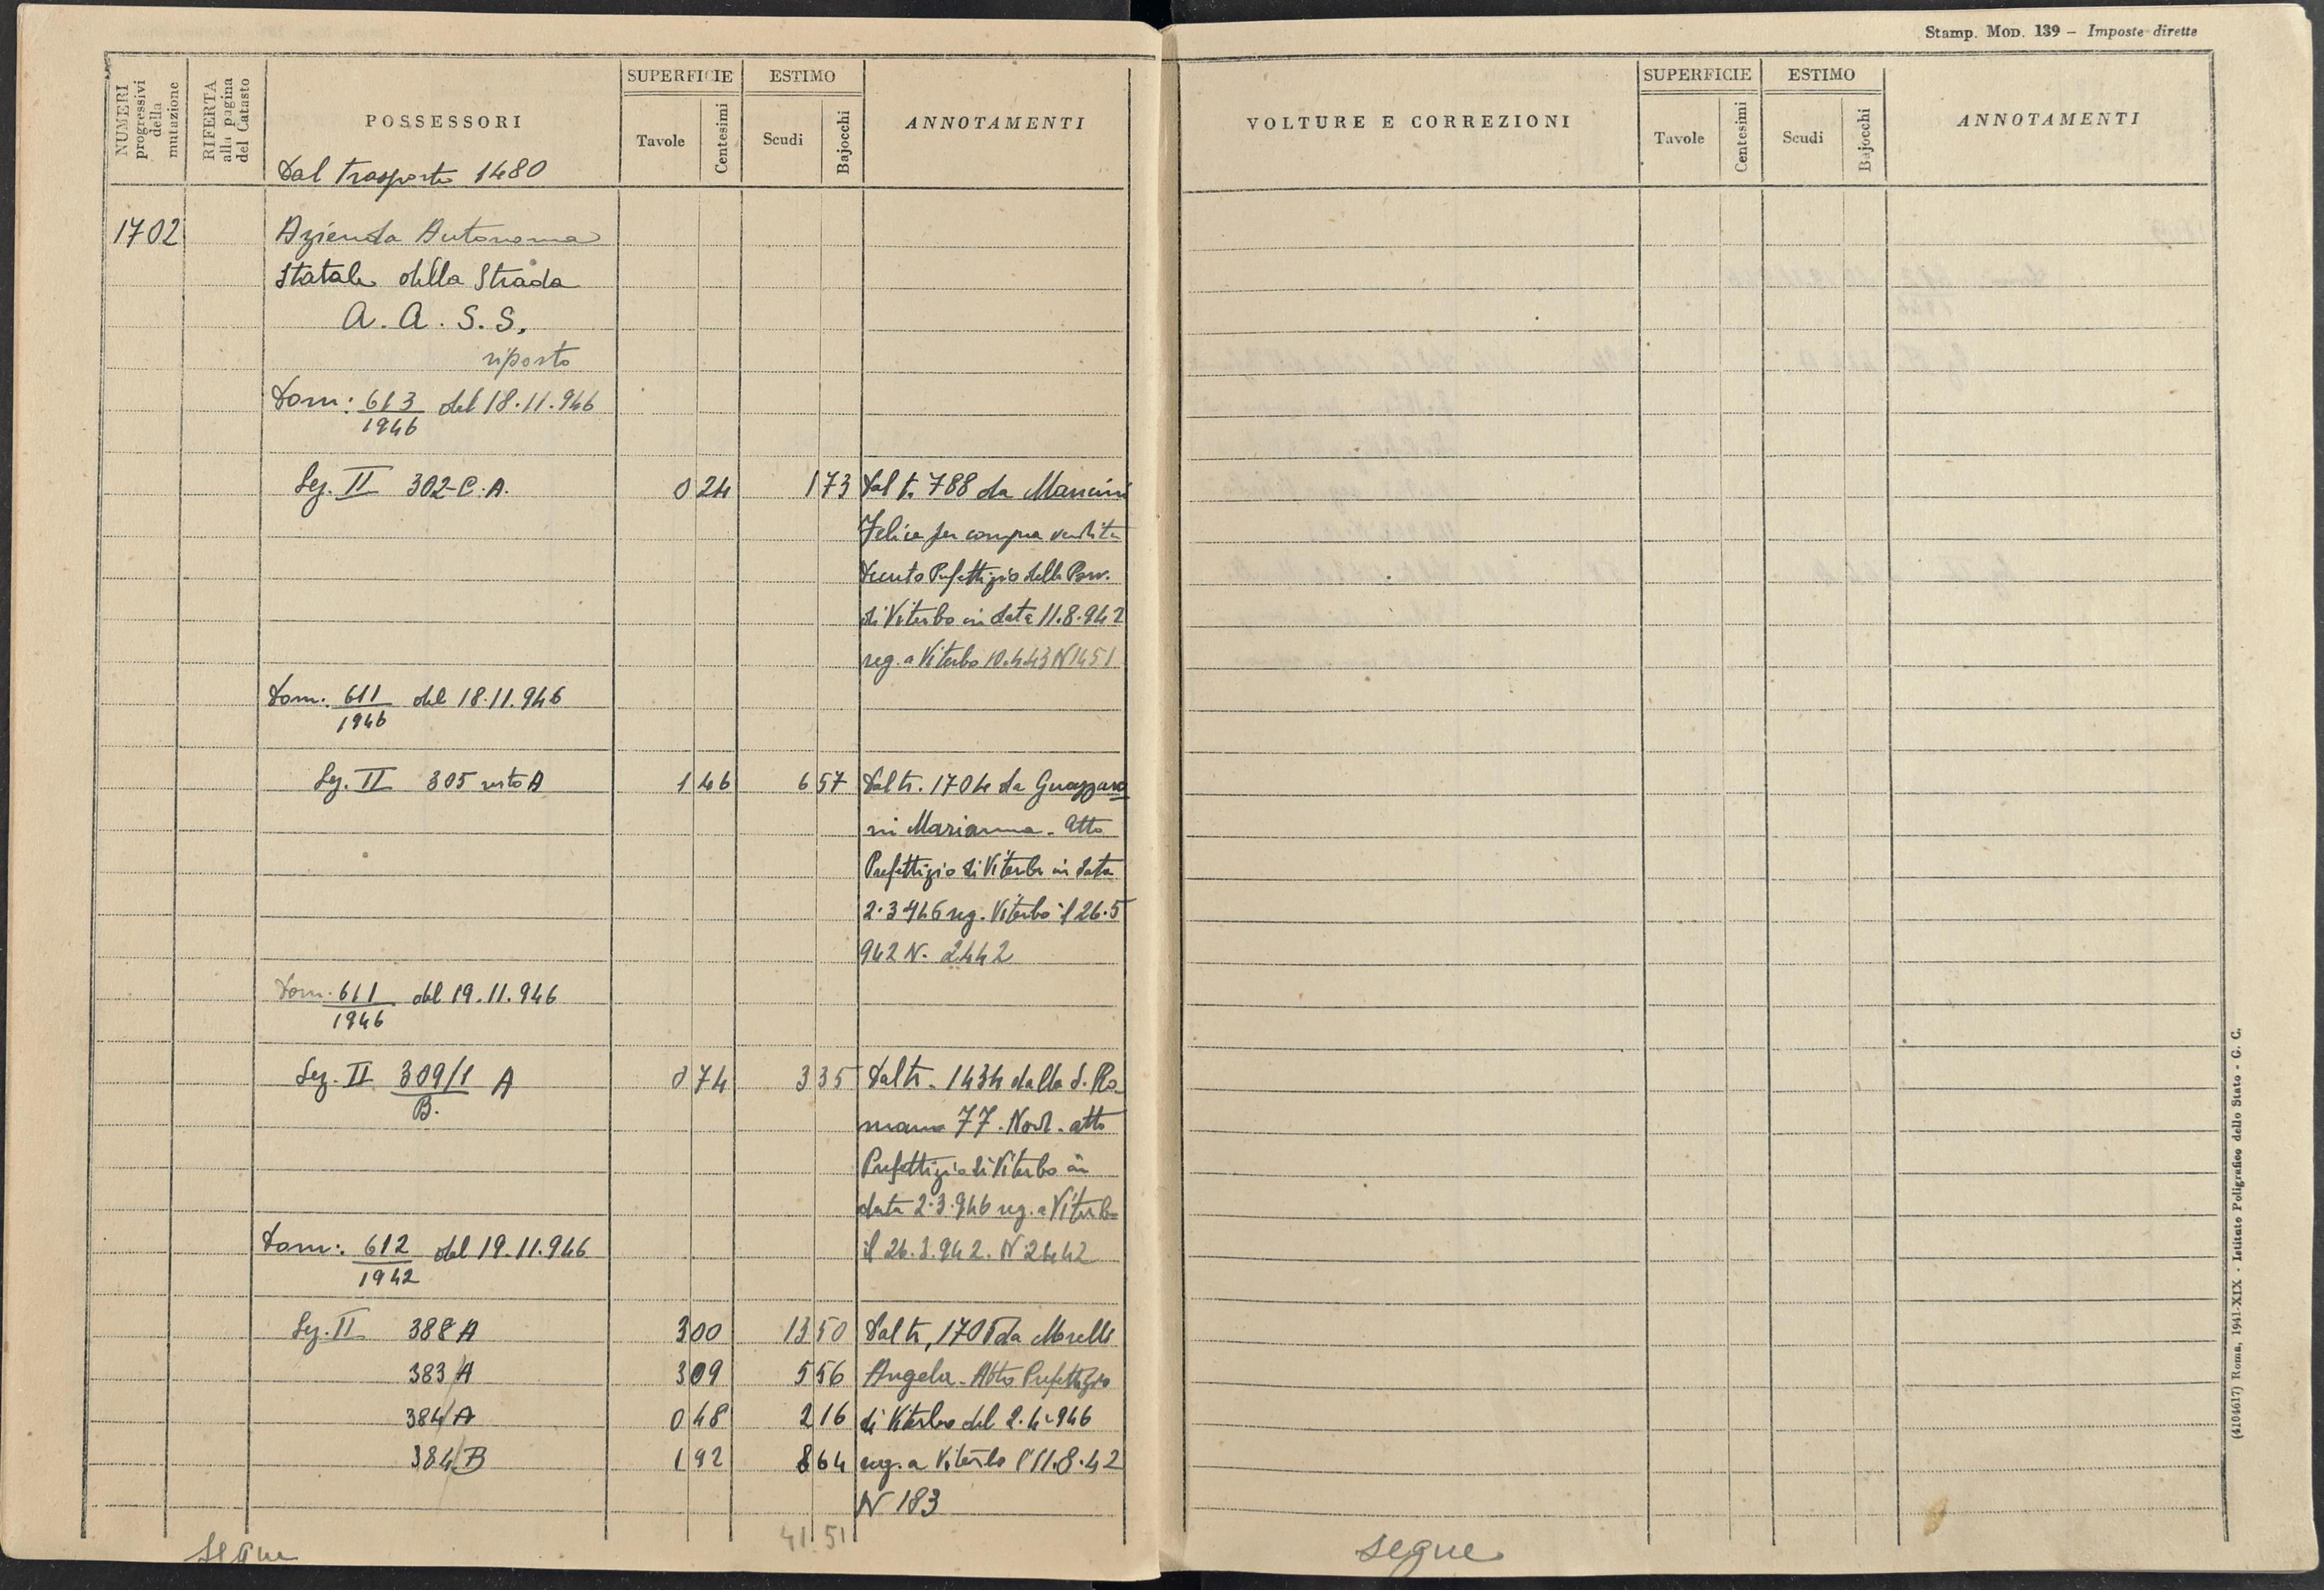 Stamp. Mod. 139 – Imposte dirette
NUMERI progressivi della mutazione
RIFERTA alla pagina del Catasto
POSSESSORI
SUPERFICIE
Tavole
Centesimi
ESTIMO
Scudi
Bajocchi
ANNOTAMENTI
Dal trasporto 1480
1702
Azienda Autonoma
Statale della Strada
A. A. S. S.
riporto
Dom: 613/1946 del 18.11.946
Sez. II 302-C.A. 0 24 1 73 Dal t. 788 da Mancini
Felice per compra vendita
Decreto Prefettizio della Prov.
di Viterbo in data 11.8.942
reg. a Viterbo 10.4.43 N 1451
Dom: 611/1946 del 18.11.946
Sez. II 305 resto A 1 46 6 57 Dal tr. 1704 da Guazzaro
ni Marianna - Atto
Prefettizio di Viterbo in data
2.3 946 reg. Viterbo il 26.5
942 N. 2442
Dom. 611/1946 del 19.11.946
Sez. II 309/1/B. A 0 74 3 35 Dal tr. 1434 dalla S. Ro
mana 77. Nord. atto
Prefettizio di Viterbo in
data 2.3.946 reg. a Viterbo
il 26.3.942. N 2442
Dom: 612/1942 del 19.11.946
Sez. II 388 A 3 00 13 50 Dal tr, 1705 da Morelli
383/A 3 09 5 56 Angela - Atto Prefettizio
384/A 0 48 2 16 di Viterbo del 2.4-946
384/B 1 92 8 64 reg. a Viterbo l'11.8.42
N 183
41.51
segue
VOLTURE E CORREZIONI
SUPERFICIE
Tavole
Centesimi
ESTIMO
Scudi
Bajocchi
ANNOTAMENTI
(4104617) Roma, 1941-XIX - Istituto Poligrafico dello Stato - G. C.
segue